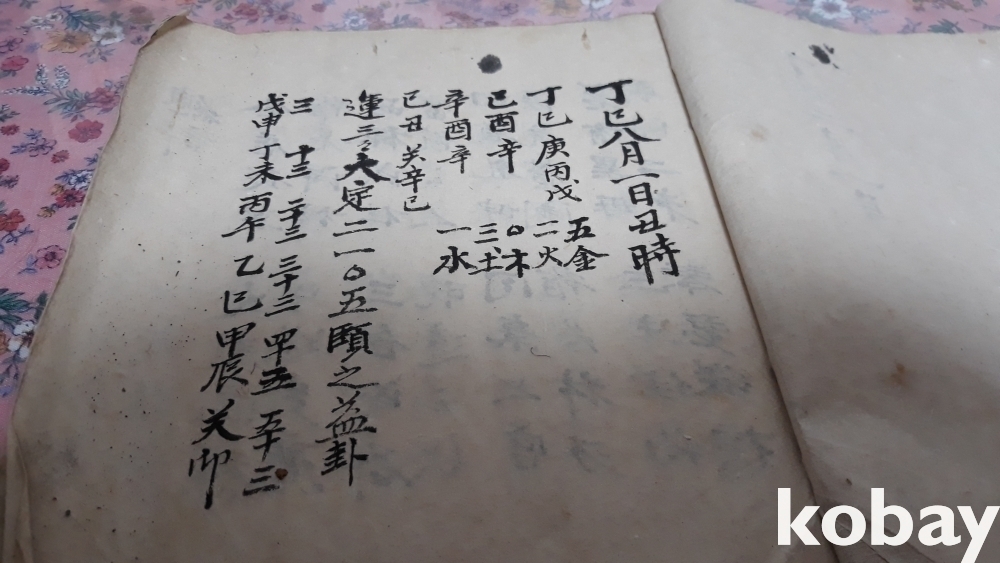 丁巳八月一日丑時
丁巳庚丙戊
己酉辛
辛酉辛
己丑癸辛己
五金
二火
〇木
三土
一水
運三〻大定二一〇五頤之益卦
三 十三 二十三 三十三 四十五 五十三
戊申 丁未 丙午 乙巳 甲辰 癸卯
kobay